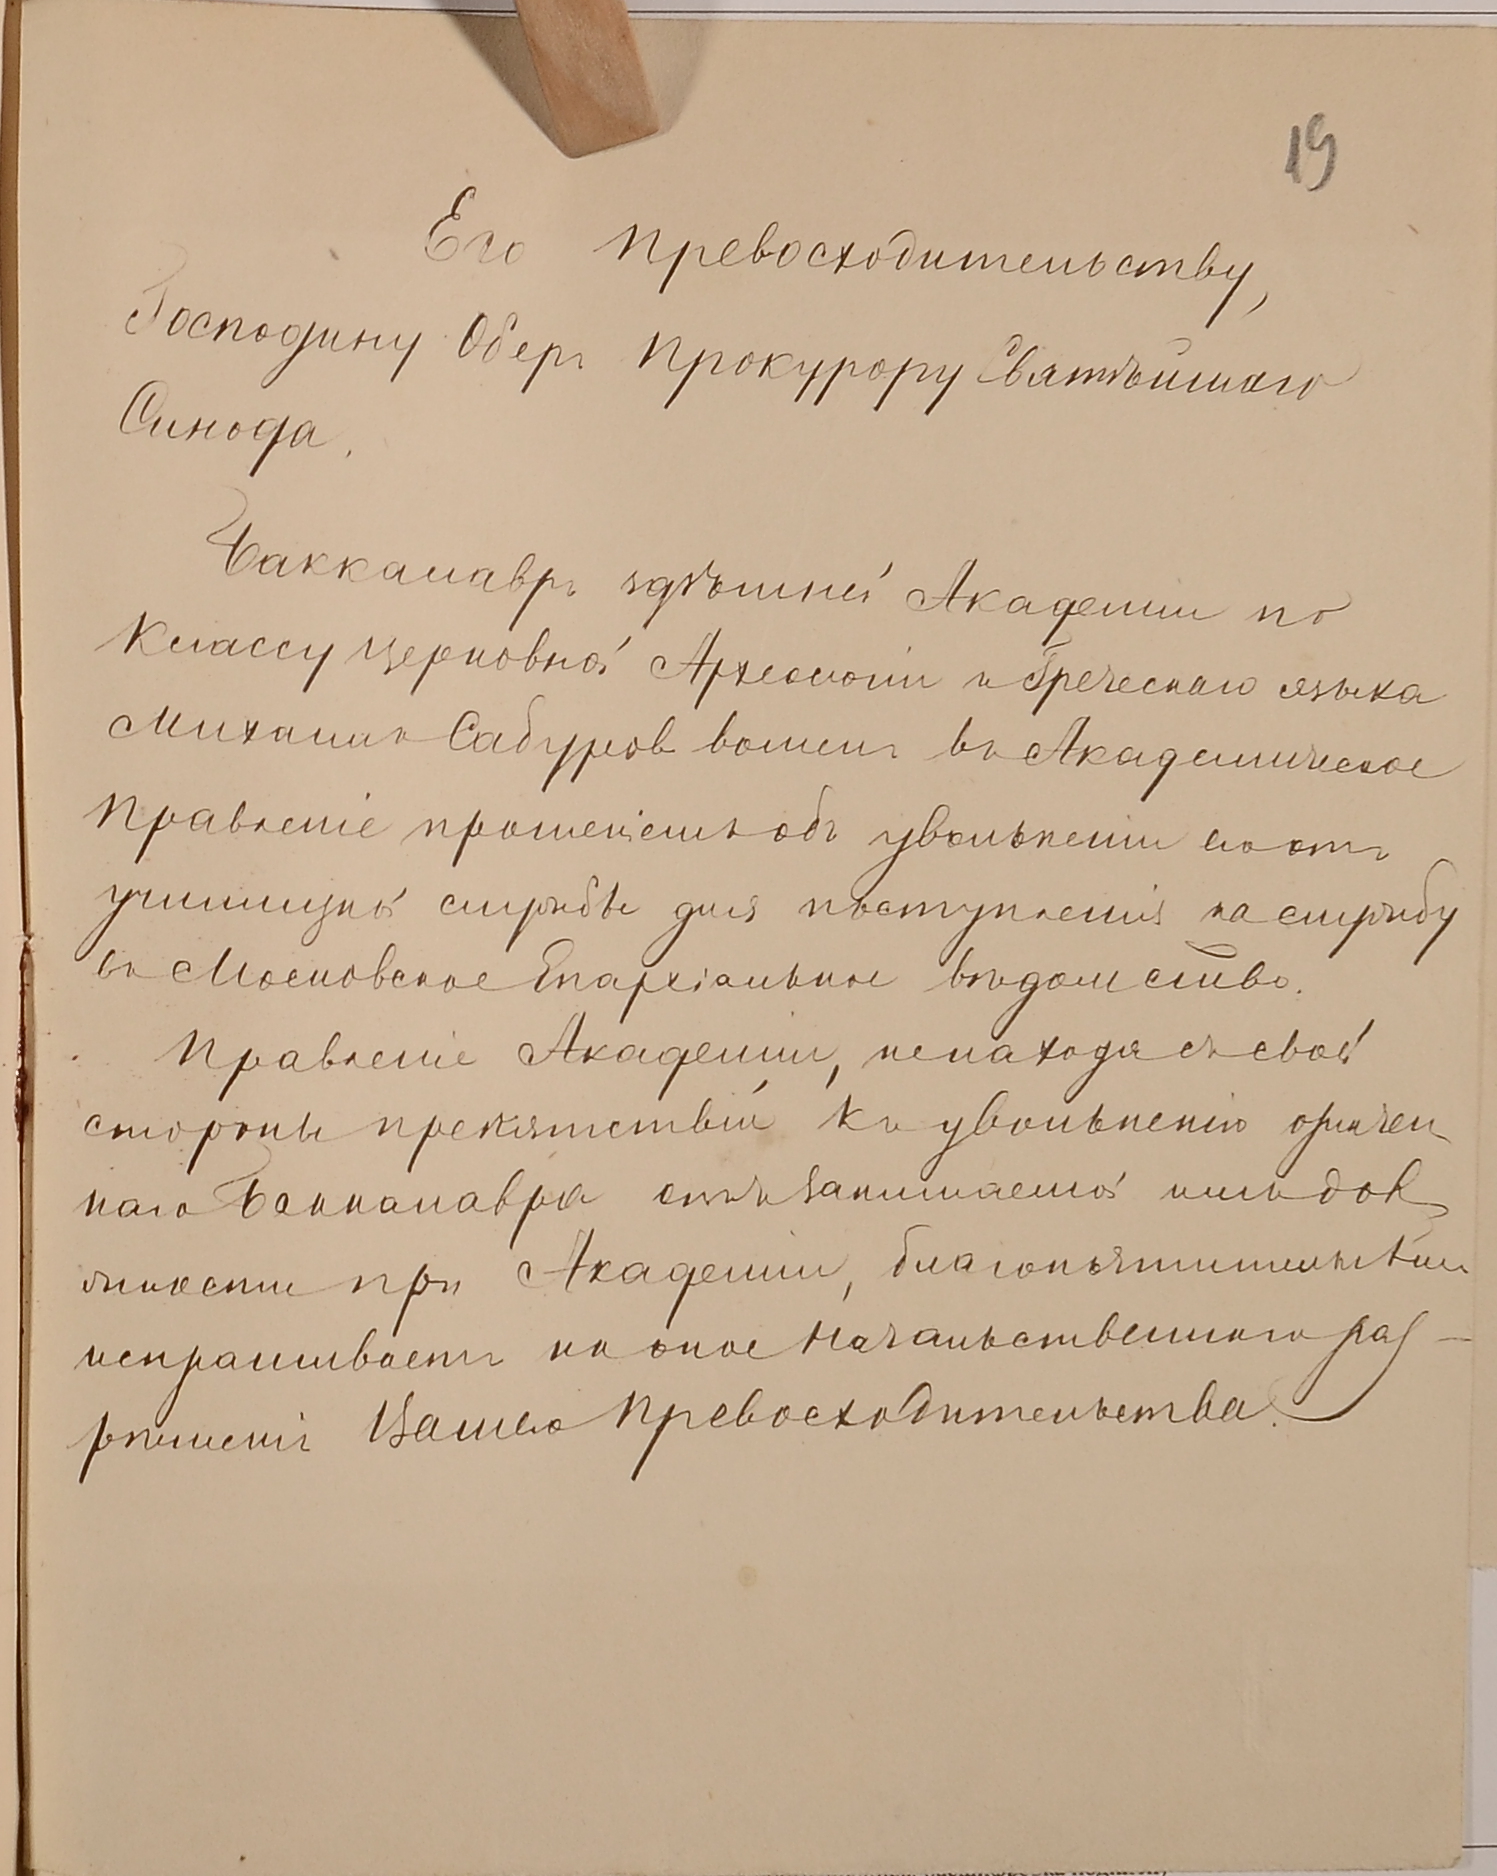 19
Его Превосходительству,
Господину Оберъ Прокурору Святѣйшаго
Синода.
Баккалавръ здѣшней Академіи по
классу Церковной Археологіи и Греческаго языка
Михаилъ Сабуровъ вошелъ въ Академическое
Правленіе прошеніемъ объ увольненіи его отъ
училищной службы для поступленія на службу
въ Московское Епархіальное вѣдомство.
Правленіе Академіи, ненаходя съ своей
стороны препятствій къ увольненію означен
наго Баккалавра отъ занимаемой имъ дол
жности при Академіи, благопочтительнѣйше
испрашиваетъ на оное Начальственнаго раз-
рѣшенія Вашего Превосходительства.